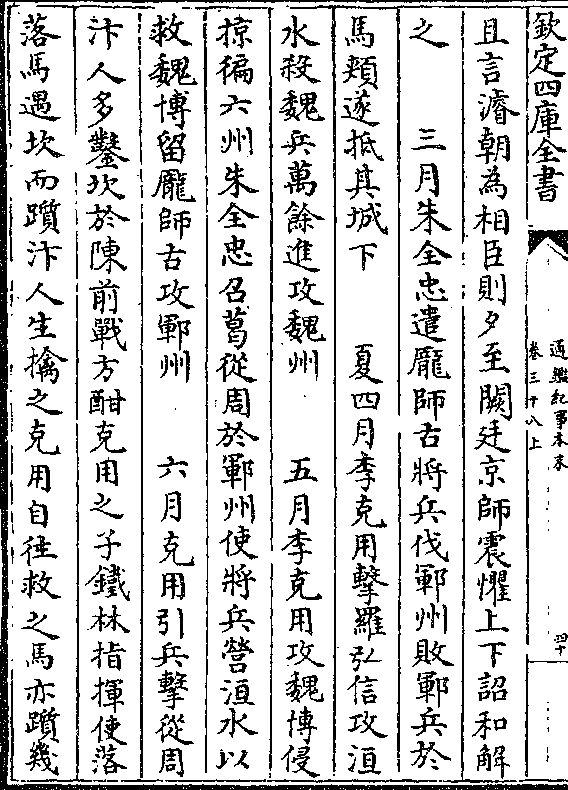 欽定四庫全書
通鑑紀事本末
卷三十八上
四十
且言濬朝為相臣則夕至闕廷京師震懼上下詔和解
之　三月朱全忠遣龎師古將兵伐鄆州敗鄆兵於
馬頰遂抵其城下　夏四月李克用擊羅弘信攻洹
水殺魏兵萬餘進攻魏州　五月李克用攻魏博侵
掠徧六州朱全忠召葛從周於鄆州使將兵營洹水以
救魏博留龎師古攻鄆州　六月克用引兵擊從周
汴人多鑿坎於陳前戰方酣克用之子鐵林指揮使落
落馬遇坎而躓汴人生擒之克用自往救之馬亦躓幾